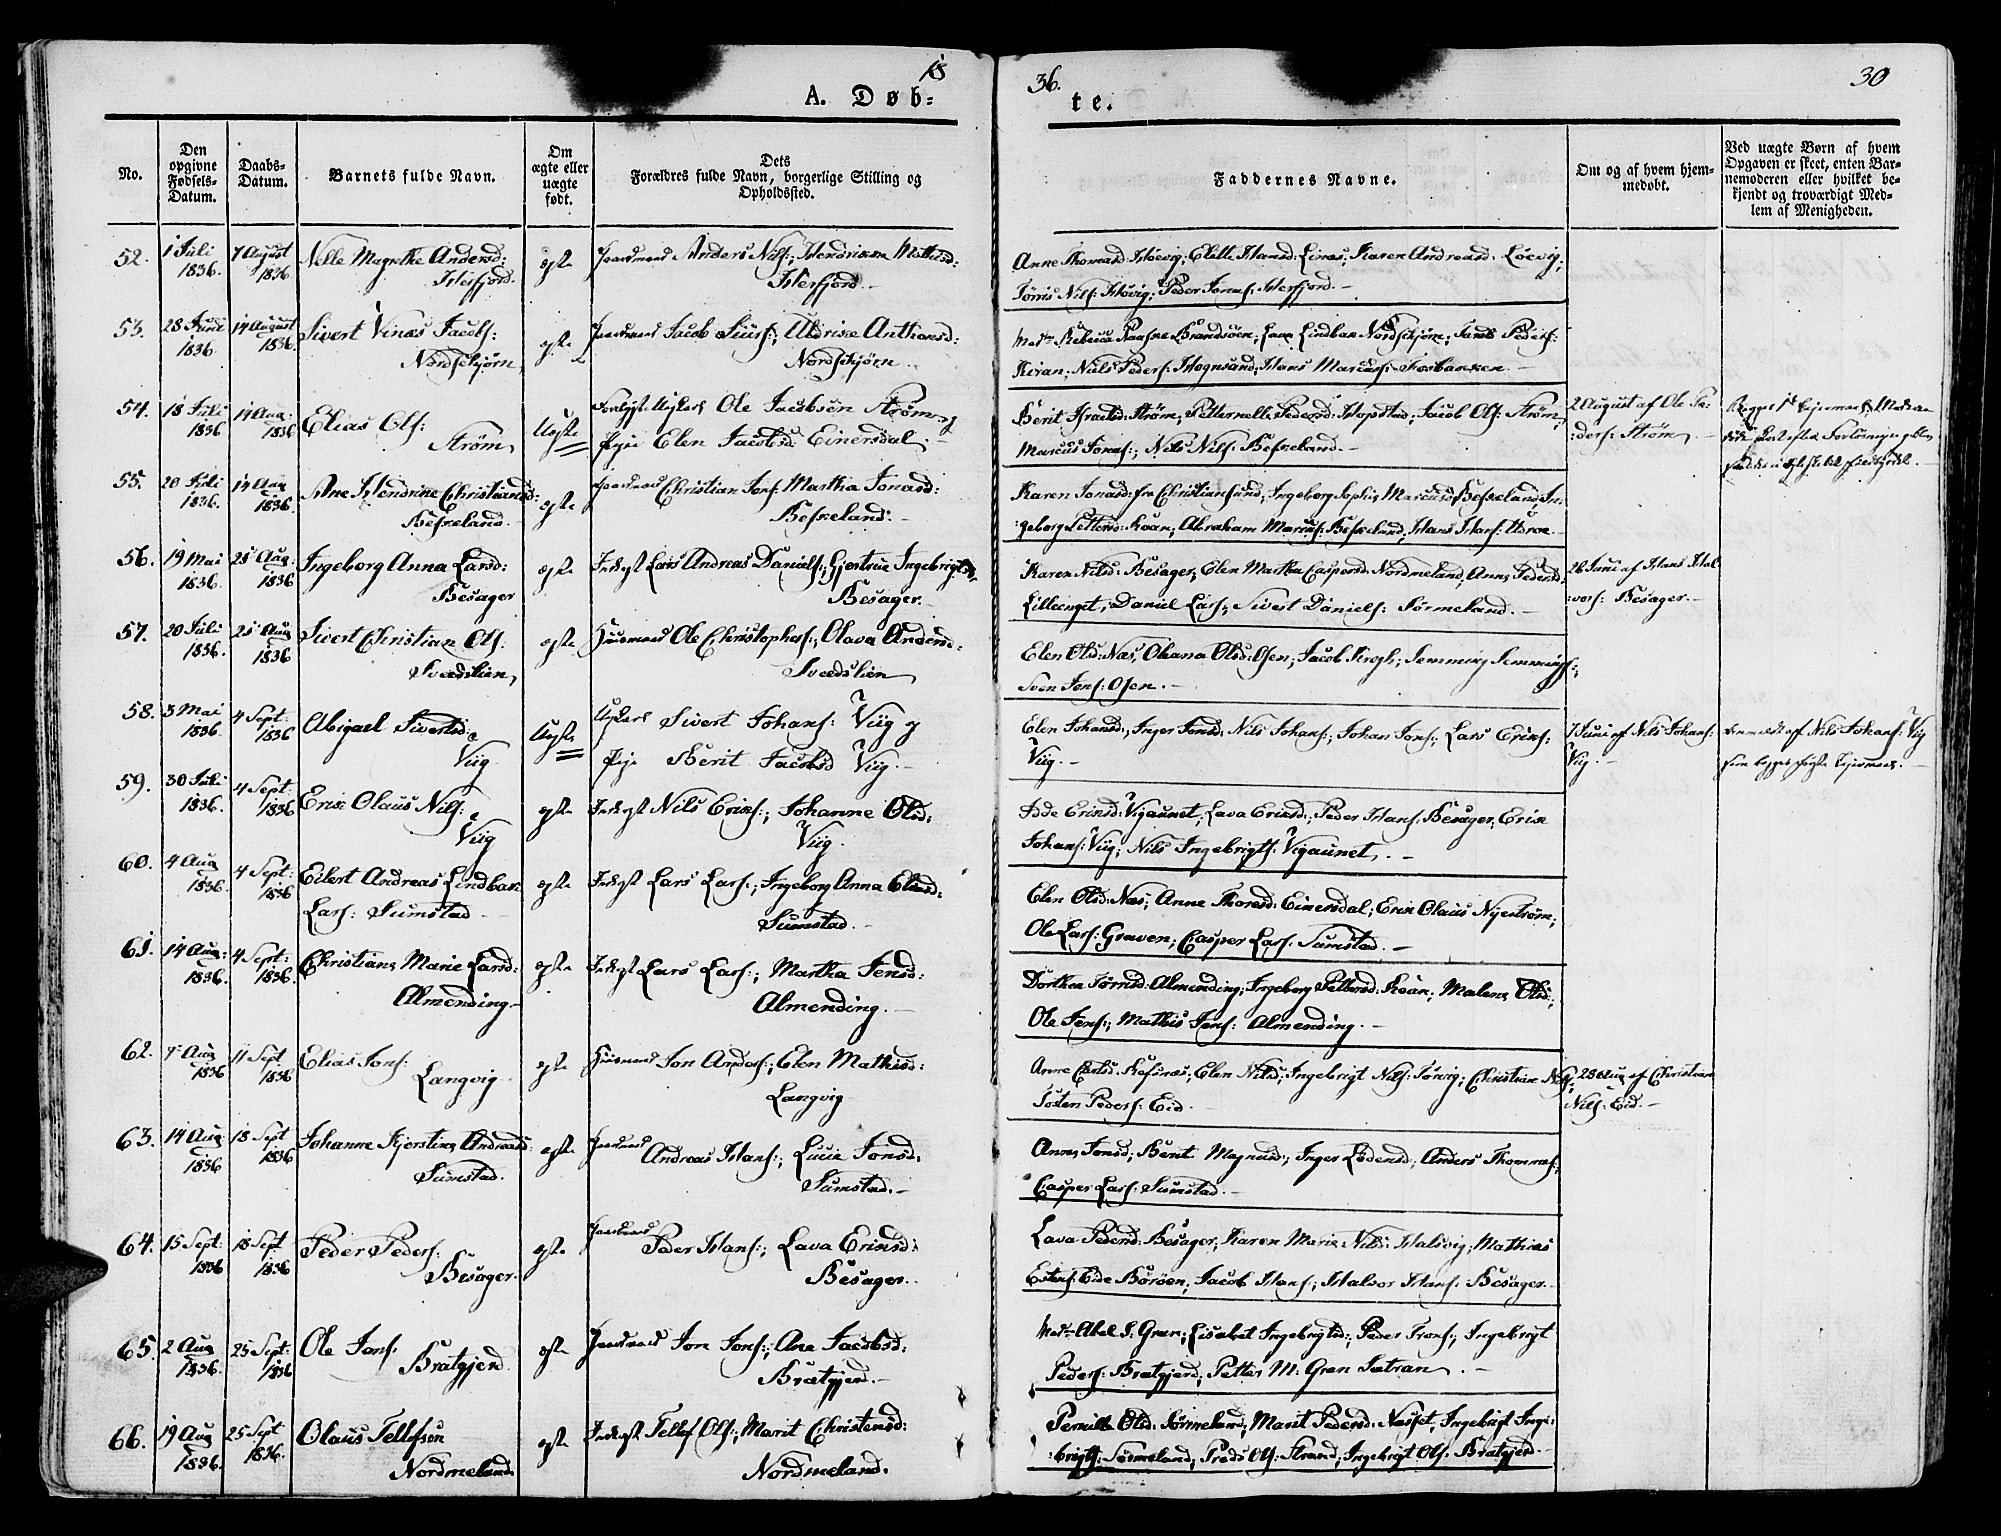 18
36.
30
A. Døb-
te.
No.
Den opgivne Fødsels-Datum.
Daabs-Datum.
Barnets fulde Navn.
Om ægte eller uægte født.
Dets Forældres fulde Navn, borgerlige Stilling og Opholdssted.
Faddernes Navne.
Om og af hvem hjem-medøbt.
Ved uægte Børn af hvem Opgaven er skeet, enten Bar-nemoderen eller hvilket be-kjendt og troværdigt Med-lem af Menigheden.
52. 1 Juli 1836. 7 August 1836 Nelle Magrethe Andersd: Isterfjord. egte Anders Nils:; Hendrikka Mathisd: Isterfjord.
Anne Thomasd: Elette Hansd: Linas; Karen Andreasd: Løevig;
Jørris Nils: Peder Jonas: Isterfjord.
53. 28 Juni 1836. 14 August 1836. Sivert Vinæs Jacobs: Nordschjørn, egte Jacob Siurs:; Ulrike Anthonsd: Nordschjørn.
Rebecca Brandsøen; Lava Lindbak Nordschjørn; Peders:
Kiran; Niels Peders: Hognsand; Hans Marcuss:
54. 18 Juli 1836 14 Aug: 1836 Elias Ols: Strøm Uegte Ungkarl Ole Jacobsen Strøm og Pige Elen Jacobsd: Einersdal.
Berit Israelsd: Strøm; Petternelle Pedersd: Hopstad; Jacob Ols: Strøm;
Marcus Jonas:; Nils Nils: Besseland.
2 August af Ole Pe-ders: Strøm
55. 20 Juli 1836. 14 Aug 1836. Ane Hendrine Christiansd: Besseland. egte Christian Jons: Martha Jonasd: Besseland.
Karen Jonasd: fra Christiansund; Ingeborg Sophia Marcusd: Besseland; In-
geborg Pettersd: Koan; Abraham Marcus: Besseland; Hans Hans:
56. 19 Mai 1836. 28 Aug 1836 Ingeborg Anna Larsd: Besager egte Inderst Lars Andreas Daniels:; Gjertrue Ingebrigtsd: Besager.
Karen Nilsd: Besager; Elen Martha Caspersd: Nordmeland; Anne Pedersd:
Lilleenget; Daniel Lars:; Sivert Daniels: Sørmeland.
26 Juni af Hans Hal-vors: Besager.
57. 20 Juli 1836. 28 Aug 1836 Sivert Christian Ols: Sveedslien, egte Huusmand Ole Christophers:; Olava Andersd: Sveedslien
Elen Olsd: Næs; Oliana Olsd: Osen; Jacob Krogh; Semming Semmings:;
Sven Jons: Osen.
58. 3 Mai 1836. 4 Sept: 1836 Abigael Sivertsd: Viig Uegte Ungkarl Sivert Johans: Viig og Pige Berit Jacobsd Viig.
Elen Johansd:, Inger Jonsd: Nils Johans:; Johan Jons:; Lars Eriks:
Viig.
7 Juni af Nils Johans: Viig.
Anmeldt af Nils Johans: Viig
59. 30 Juli 1836. 4 Sept: 1836 Erik Olaus Nils: Viig egte Inderst Nils Eriks:; Johanne Olsd: Viig.
Eriksd: Vigaunet; Lava Eriksd:; Peder Hans: Besager; Erik
Johans: Viig; Nils Ingebrigts: Vigaunet.
60. 4 Aug 1836. 4 Sept: 1836 Eilert Andreas Lindbak Lars: Sumstad egte Inderst Lars Lars:; Ingeborg Anna Eliasd: Sumstad.
Elen Olsd: Næs; Anne Thoresd: Einersdal; Erik Olaus Nyestrøm;
Ole Lars: Graven; Casper Lars: Sumstad.
61. 14 Aug: 1836. 4 Sept: 1836. Christiane Marie Larsd: Almending. egte Inderst Lars Lars:; Martha Jensd: Almending.
Dorthea Jørrisd: Almending; Ingeborg Pettersd: Koan; Malene Olsd:;
Ole Jens:; Mathis Jens: Almending.
62. 7 Aug 1836 11 Sept 1836 Elias Jons: Langvig egte Huusmand Jon Anders:; Elen Mathisd: Langvig
Anne Carlsd: Refsnæs; Elen Nilsd; Ingebrigt Nils: Christian Nils:;
Josten Peders: Eid.
28 Aug af Christian Nils: Eid.
63. 14 Aug 1836 18 Sept 1836 Johanne Kjerstine Andreasd: Sumstad. egte Andreas Hans:; Lucie Jonsd: Sumstad.
Anne Jonsd; Berit Magnusd:; Inger Lødensd:; Anders Thomas:;
Casper Lars: Sumstad.
64. 15 Sept: 1836 18 Sept 1836 Peder Peders: Besager. egte Peder Hans:; Lava Eriksd: Besager.
Lava Pedersd: Besager; Karen Marie Nilsd: Halsvig; Mathias
Estens: Eide Børøen; Jacob Hans:; Halvor Hans: Besager.
65. 2 Aug 1836. 25 Sept: 1836 Ole Jons: Bratgjerd egte Jon Jons:; Ane Jacobsd: Bratgjerd.
Abel S: Gran; Lisabet Ingebrigtsd:; Peder Trons:; Ingebrigt
Peders: Bratgjerd; Petter M: Gran Sætran.
66. 19 Aug 1836. 25 Sept 1836. Olaus Tellefsen Nordmeland. egte Inderst Tellef Ols:; Marit Christensd: Nordmeland.
Pernille Olsd: Sørmeland; Marit Pedersd: Næsset; Ingebrigt Inge-
brigts: Sørmeland; Ols: Strand; Ingebrigt Ols: Bratgjerd.